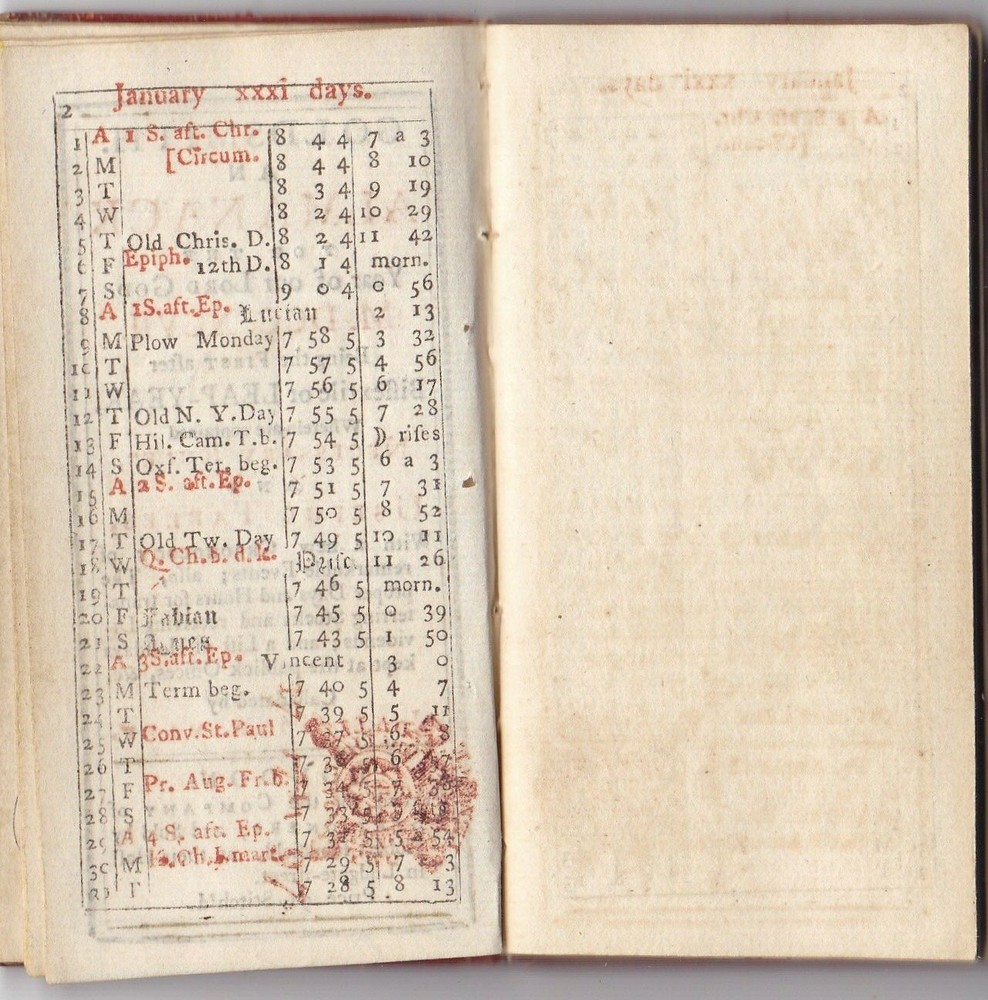 January xxxi days.
2
1 A 1 S. aft. Chr. 8 4 4 7 a 3
2 M [Circum. 8 4 4 8 10
3 T 8 3 4 9 19
4 W 8 2 4 10 29
5 T Old Chris. D. 8 2 4 11 42
6 F Epiph. 12th D. 8 1 4 morn.
7 S 9 0 4 0 56
8 A 1S. aft. Ep. Lucian 2 13
9 M Plow Monday 7 58 5 3 32
10 T 7 57 5 4 56
11 W 7 56 5 6 17
12 T Old N. Y. Day 7 55 5 7 28
13 F Hil. Cam. T. b. 7 54 5 ☽ rises
14 S Oxf. Ter. beg. 7 53 5 6 a 3
15 A 2 S. aft. Ep. 7 51 5 7 31
16 M 7 50 5 8 52
17 T Old Tw. Day 7 49 5 10 11
18 W Q. Ch. b. d. k. Prisc 11 26
19 T 7 46 5 morn.
20 F Fabian 7 45 5 0 39
21 S Agnes 7 43 5 1 50
22 A 3S. aft. Ep. Vincent 3 0
23 M Term beg. 7 40 5 4 7
24 T 7 39 5 5 11
25 W Conv. St. Paul 7 5 6 8
26 T 7 5 6
27 F Pr. Aug. Fr. b. 7 34 5 7
28 S 7 33 5
29 A 4 S. aft. Ep. 7 5 5 a 54
30 M 7 29 5 7 3
31 T 7 28 5 8 13